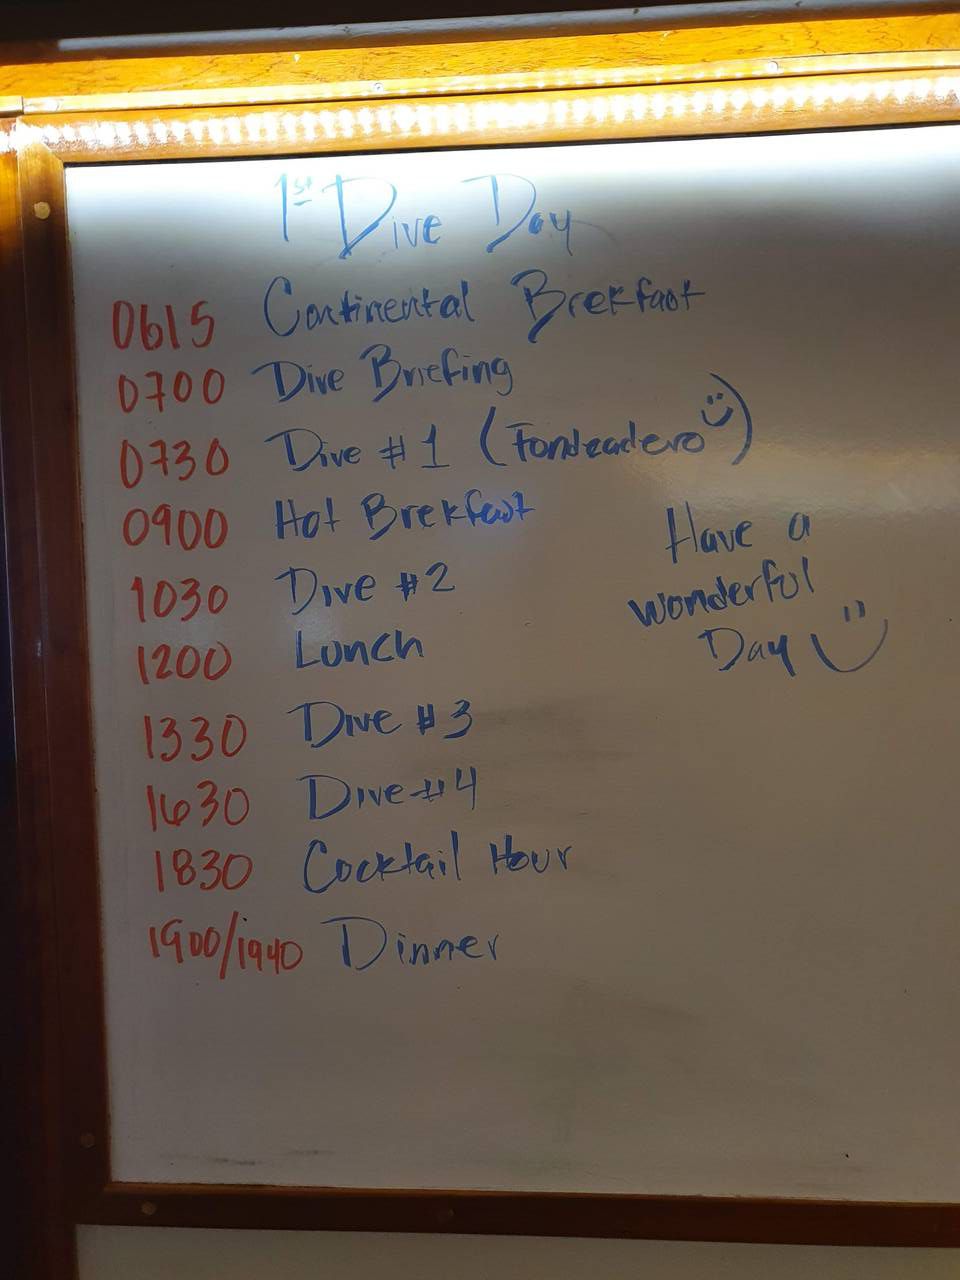 1st Dive Day
0615 Continental Brekfast
0700 Dive Briefing
0730 Dive #1 (Fondeadero)
0900 Hot Brekfast
1030 Dive #2
1200 Lunch
1330 Dive #3
1630 Dive #4
1830 Cocktail Hour
1900/1940 Dinner
Have a
wonderful
Day